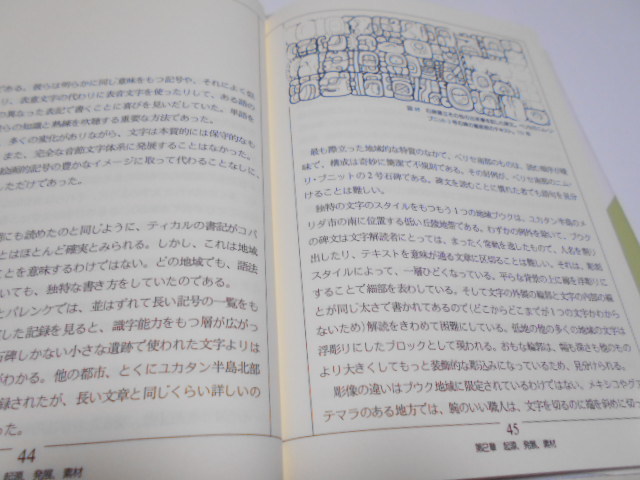 である。彼らは明らかに同じ意味をもつ記号や、それによく似
り、表意文字の代わりに表音文字を使ったりして、ある語の
の異なった表記で書くことに喜びを見いだしていた。単語を
らの知識と熟練を吹聴する重要な方法であった。
多くの変化がありながら、文字は本質的には保守的なも
また、完全な音節文字体系に発展することはなかった。
絵画的記号の豊かなイメージに取って代わることなしに、
しただけであった。
間にも読めたのと同じように、ティカルの書記がコパ
とはほとんど確実とみられる。しかし、これは地域
ことを意味するわけではない。どの地域でも、語法
いても、独特な書き方をしていたのである。
とパレンケでは、並はずれて長い記号の一覧をも
した記録を見ると、識字能力をもつ層が広がっ
石碑しかない小さな遺跡で使われた文字よりは
がわかる。他の都市、とくにユカタン半島北部
録されたが、長い文章と同じくらい詳しいの
った。
44
起源、発展、素材
最も際立った地域的な特質のなかで、ベリセ南部のものは、読む順序が曖
味で、構成は奇妙に簡潔で不規則である。その好例が、ベリセ南部のニム・
リ・プニットの2号石碑である。碑文を読むことに慣れた者でも語句を見分
けることは難しい。
独特の文字のスタイルをもつもう1つの地域プウクは、ユカタン半島のメ
リダ市の南に位置する低い丘陵地帯である。わずかの例外を除いて、プウク
の碑文は文字解読者にとっては、まったく常軌を逸したもので、人名を割り
出したり、テキストを意味が通る文章に区切ることは難しい。それは、彫刻
スタイルによって、一層ひどくなっている。平らな背景の上に線を浮彫りに
することで細部を表わしている。そして文字の外側の輪郭と文字の内部の線
とが同じ太さで書かれてあるので(どこからどこまでが1つの文字かわから
ないため)解読をきわめて困難にしている。低地の他の多くの地域の文字は
浮彫りにしたブロックとして現われる。おもな輪郭は、幅も深さも他のもの
より大きくしてもっと装飾的な彫込みになっているため、見分けられる。
彫像の違いはプウク地域に限定されているわけではない。メキシコやグァ
テマラのある地方では、腕のいい職人は、文字を切るのに鑿を斜めに切っ
45
第2章 起源、発展、素材